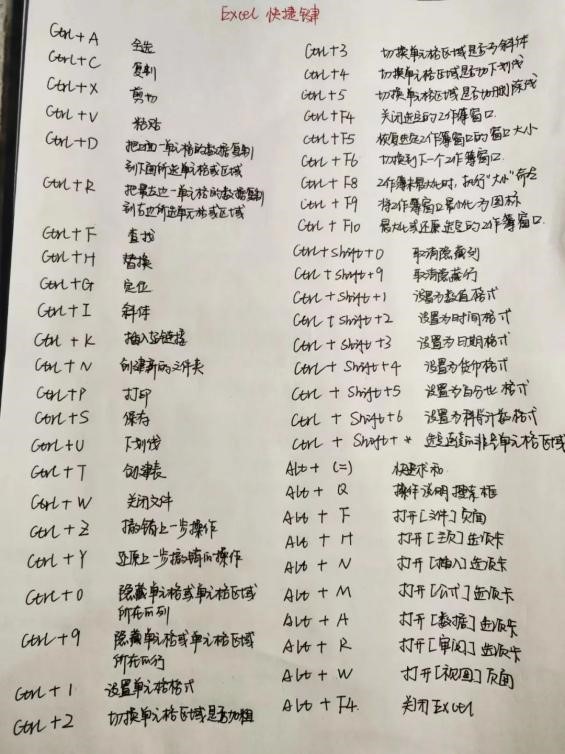 Excel 快捷键
Ctrl + A 全选
Ctrl + C 复制
Ctrl + X 剪切
Ctrl + V 粘贴
Ctrl + D 把上面一单元格的数据复制
到下面所选单元格或区域
Ctrl + R 把最左边一单元格的数据复制
到右边所选单元格或区域
Ctrl + F 查找
Ctrl + H 替换
Ctrl + G 定位
Ctrl + I 斜体
Ctrl + K 插入超链接
Ctrl + N 创建新的文件夹
Ctrl + P 打印
Ctrl + S 保存
Ctrl + U 下划线
Ctrl + T 创建表
Ctrl + W 关闭文件
Ctrl + Z 撤销上一步操作
Ctrl + Y 还原上一步撤销的操作
Ctrl + 0 隐藏单元格或单元格区域
所在的列
Ctrl + 9 隐藏单元格或单元格区域
所在的行
Ctrl + 1 设置单元格格式
Ctrl + 2 切换单元格区域是否加粗
Ctrl + 3 切换单元格区域是否为斜体
Ctrl + 4 切换单元格区域是否加下划线
Ctrl + 5 切换单元格区域是否加删除线
Ctrl + F4 关闭选定的工作簿窗口
Ctrl + F5 恢复选定工作簿窗口的窗口大小
Ctrl + F6 切换到下一个工作簿窗口.
Ctrl + F8 工作簿未最大化时,执行"大小"命令
Ctrl + F9 将工作簿窗口最小化为图标
Ctrl + F10 最大化或还原选定的工作簿窗口.
Ctrl + Shift + 0 取消隐藏列
Ctrl + Shift + 9 取消隐藏行
Ctrl + Shift + 1 设置为数值格式
Ctrl + Shift + 2 设置为时间格式
Ctrl + Shift + 3 设置为日期格式
Ctrl + Shift + 4 设置为货币格式
Ctrl + Shift + 5 设置为百分比格式
Ctrl + Shift + 6 设置为科学计数格式
Ctrl + Shift + * 选定连续的非空单元格区域
Alt + (=) 快速求和
Alt + Q 操作说明搜索框
Alt + F 打开[文件]页面
Alt + H 打开[主页]选项卡
Alt + N 打开[插入]选项卡
Alt + M 打开[公式]选项卡
Alt + A 打开[数据]选项卡
Alt + R 打开[审阅]选项卡
Alt + W 打开[视图]页面
Alt + F4. 关闭Excel